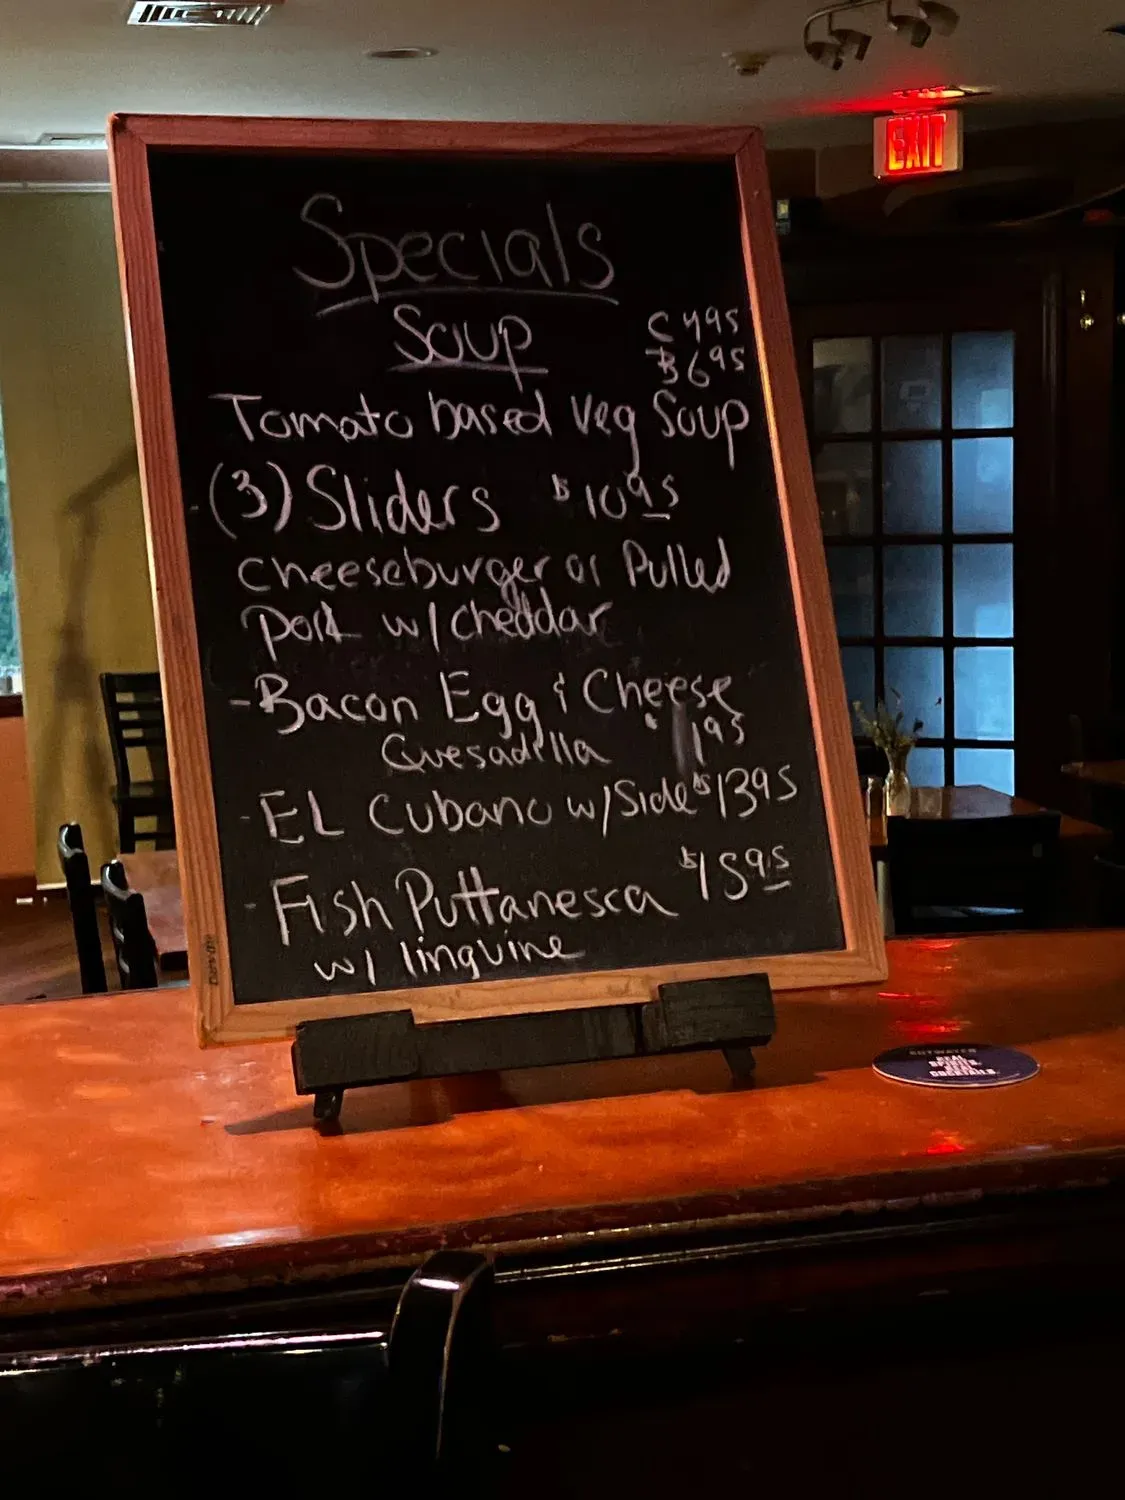 EXIT
Specials
Soup
C 4.95
B 6.95
Tomato based Veg Soup
-(3) Sliders $10.95
cheeseburger or Pulled
Pork w/ cheddar
-Bacon Egg & Cheese
Quesadilla
- EL Cubano w/Side $13.95
- Fish Puttanesca $15.95
w/ linguine
REAL